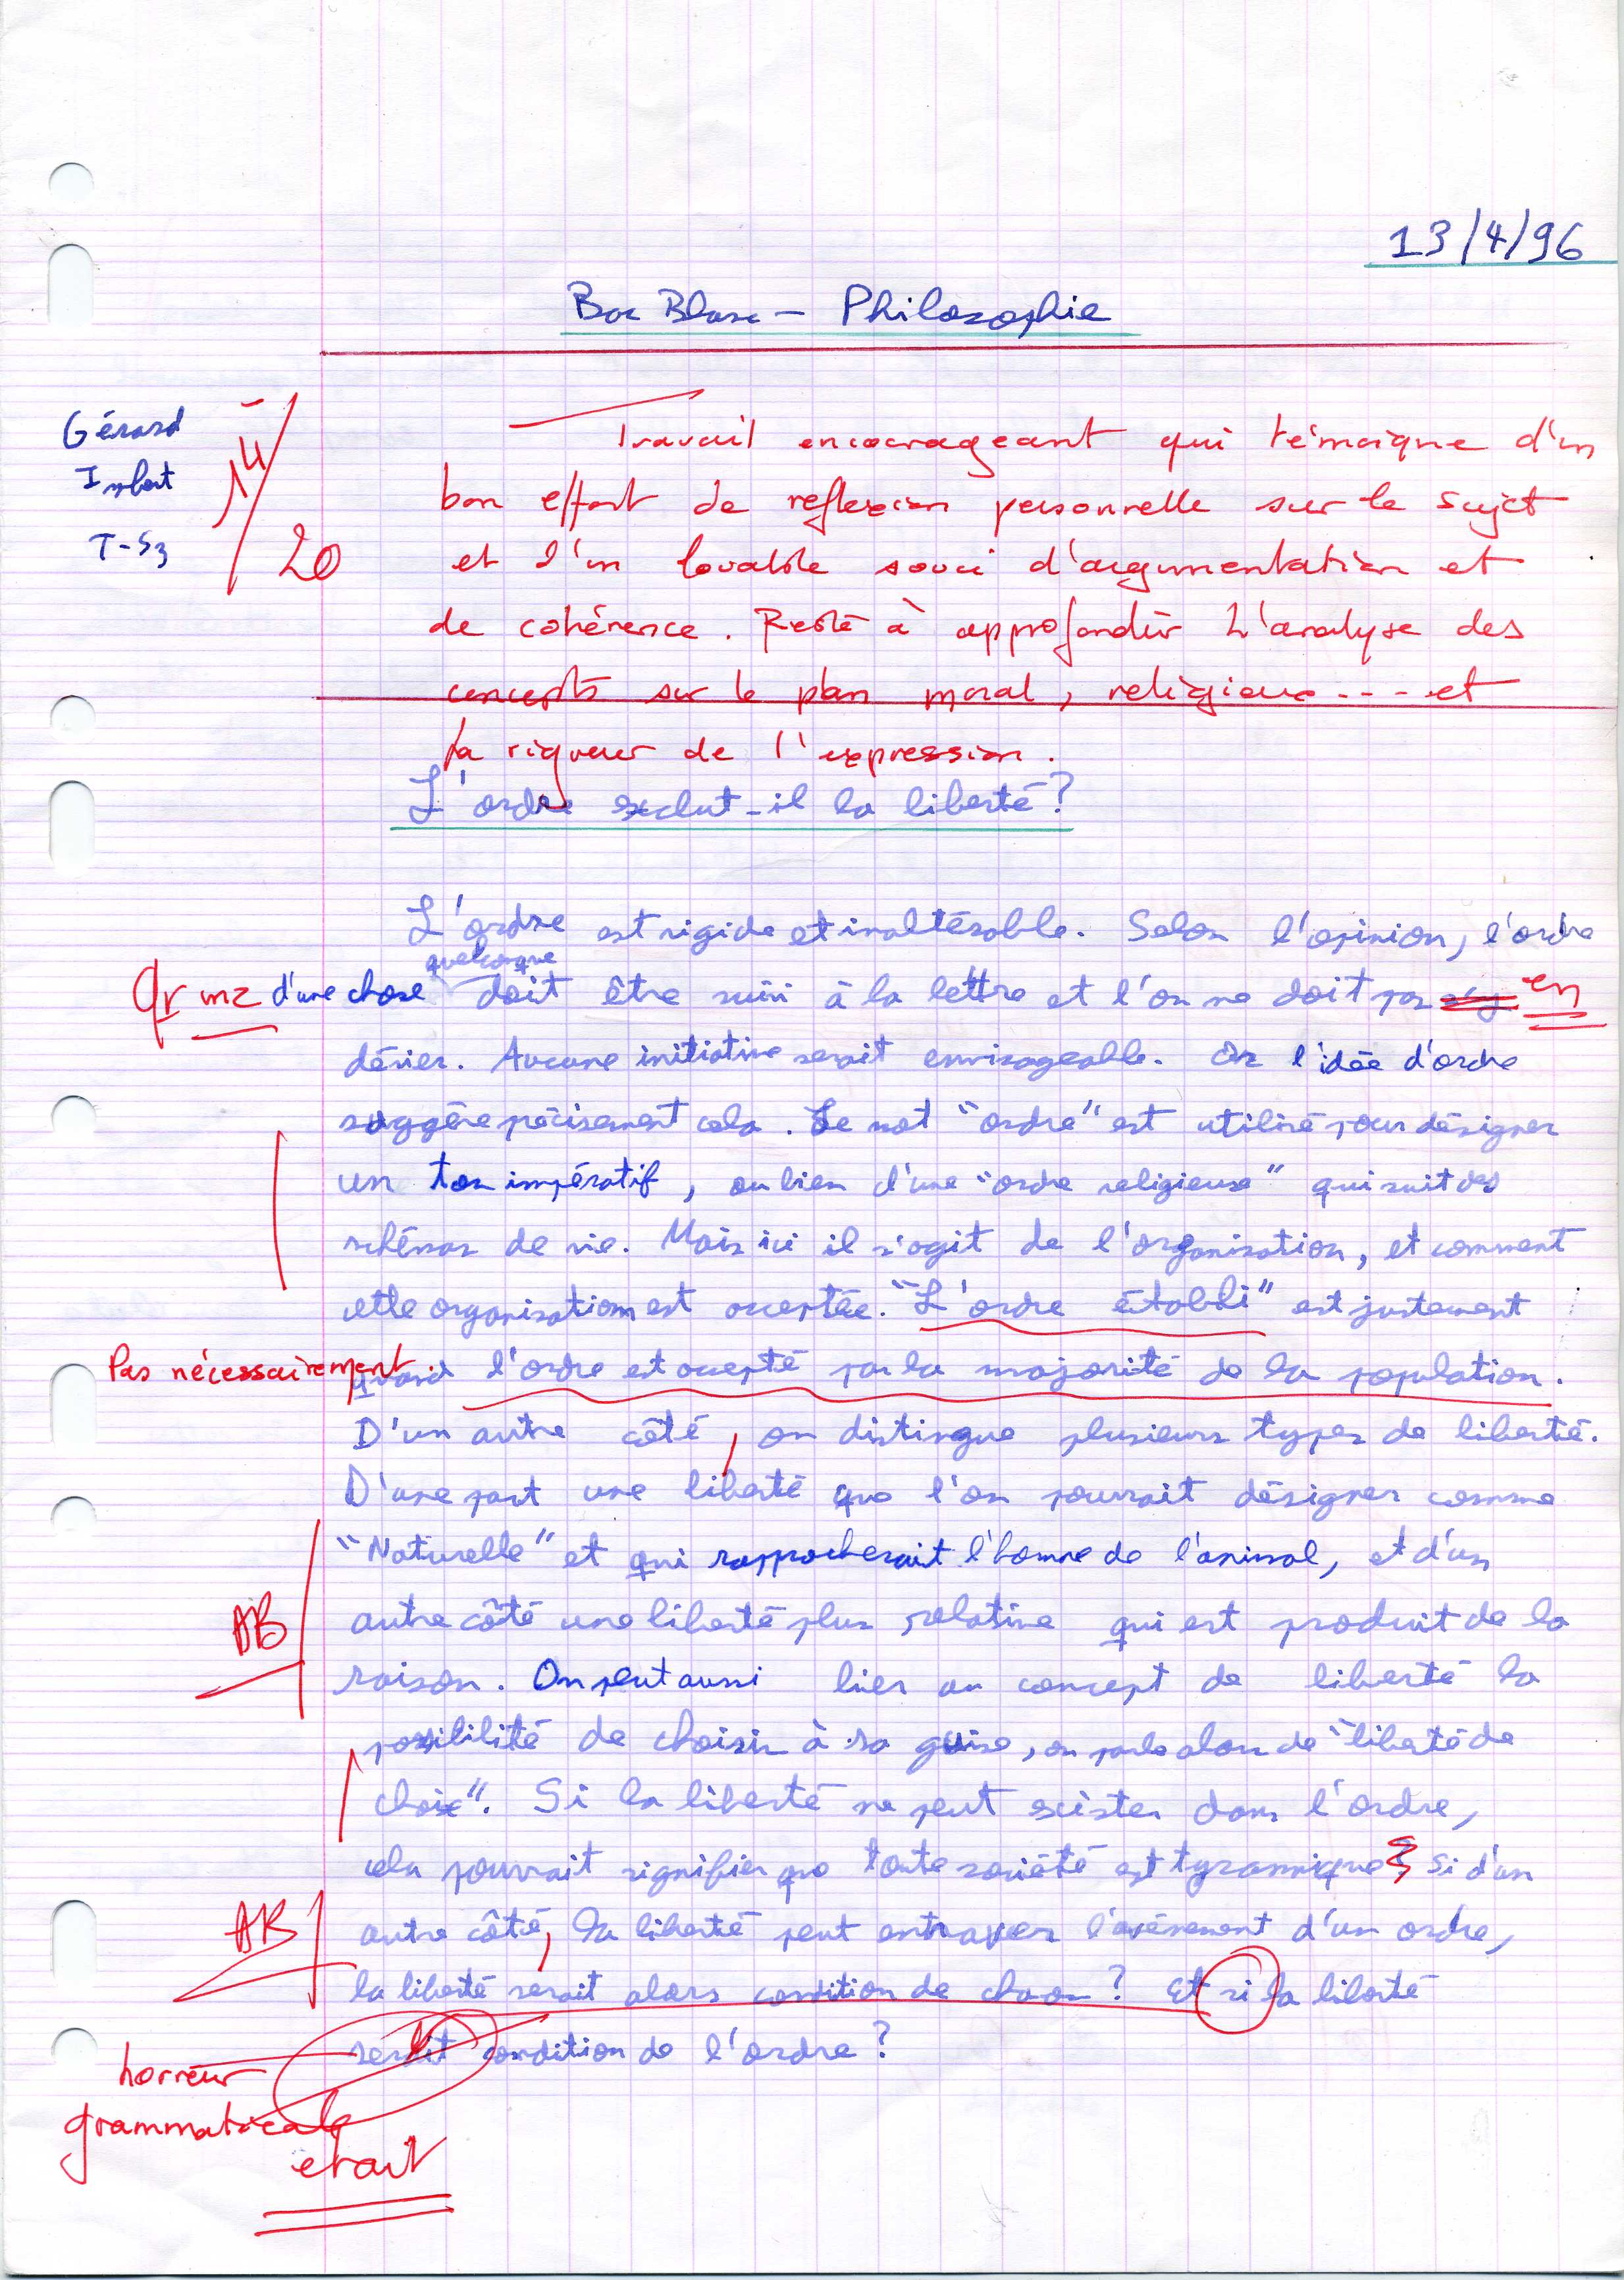 13/4/96
Bac Blanc - Philosophie
Gérard
Imbert
T-S3
14/20
Travail encourageant qui témoigne d'un
bon effort de reflexion personnelle sur le sujet
et d'un louable souci d'argumentation et
de cohérence. Reste à approfondir l'analyse des
concepts sur le plan moral, religieux ---- et
la rigueur de l'expression.
L'ordre exclut-il la liberté?
L'ordre est rigide et inaltérable. Selon l'opinion, l'ordre
quelconque
d'une chose doit être suivi à la lettre et l'on ne doit pas en
dévier. Aucune initiative serait envisageable. Or l'idée d'ordre
suggère précisement cela. Le mot "ordre" est utilisé pour désigner
un ton impératif, ou bien d'une "ordre religieuse" qui suit des
schémas de vie. Mais ici il s'agit de l'organisation, et comment
cette organisation est acceptée. "L'ordre établi" est justement
Pas nécessairement
quand l'ordre est accepté par la majorité de la population.
D'un autre côté, on distingue plusieurs types de liberté.
D'une part une liberté que l'on pourrait désigner comme
"Naturelle" et qui rapprocherait l'homme de l'animal, et d'un
AB
autre côté une liberté plus relative qui est produit de la
raison. On peut aussi lier au concept de liberté la
possibilité de choisir à sa guise, on parle alors de "liberté de
choix". Si la liberté ne peut exister dans l'ordre,
cela pourrait signifier que toute société est tyrannique? Si d'un
AB
autre côté, la liberté peut entraver l'avénement d'un ordre,
la liberté serait alors condition de chaos? Et si la liberté
serait condition de l'ordre?
horreur
grammaticale
etait